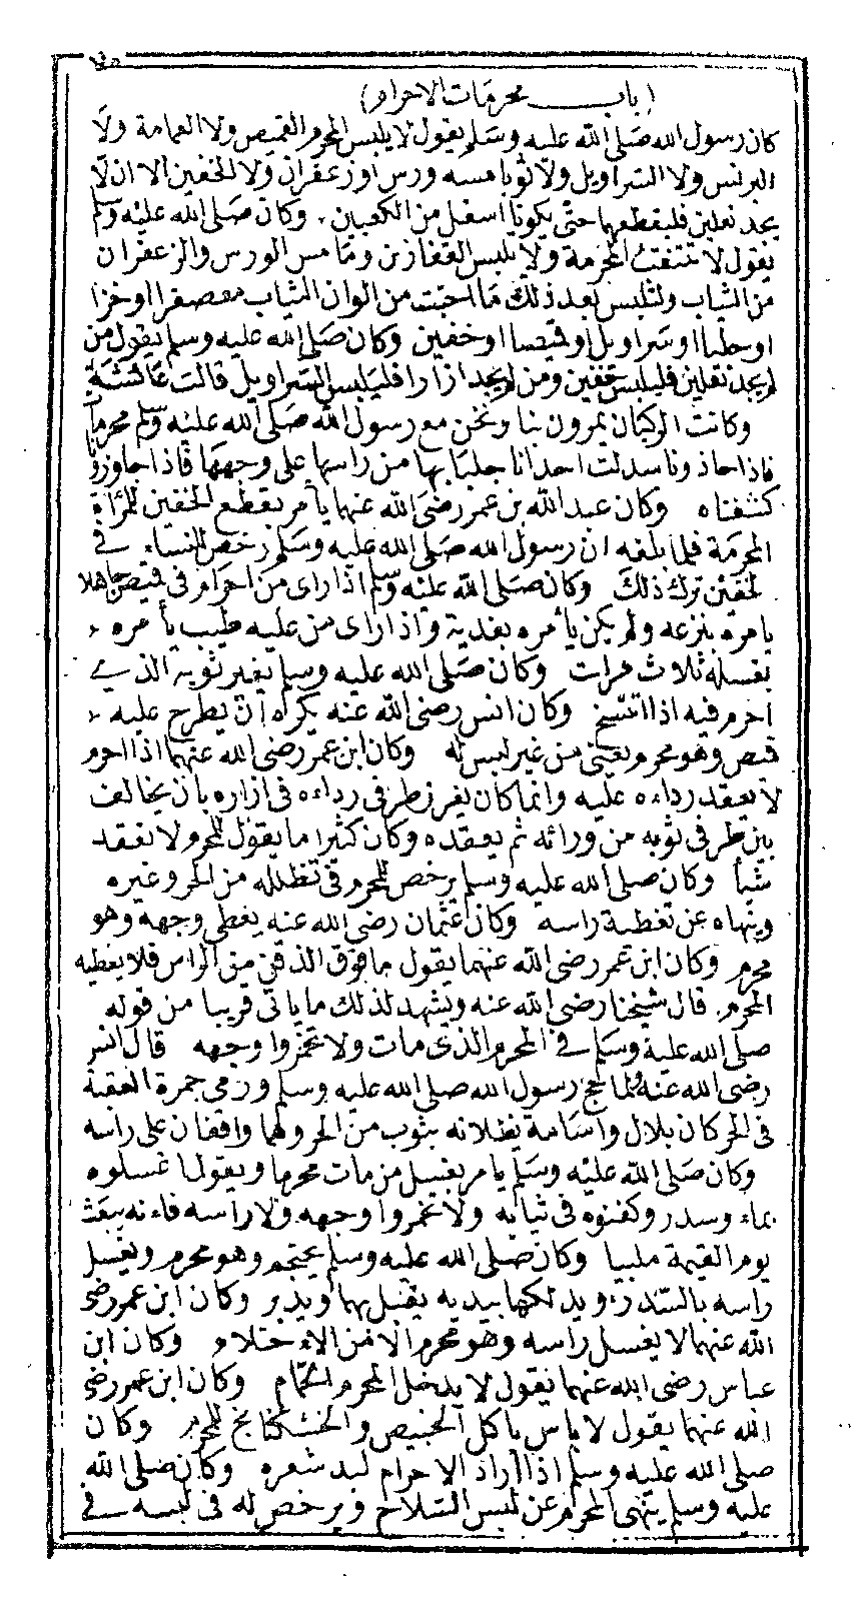 (باب محرمات الاحرام)
كان رسول الله صلى الله عليه وسلم يقول لا يلبس المحرم القميص ولا العمامة ولا
البرنس ولا السراويل ولا ثوبا مسه ورس او زعفران ولا الخفين الا ان لا
يجد نعلين فليقطعهما حتى يكونا اسفل من الكعبين، وكان صلى الله عليه وسلم
يقول لا تنتقب المحرمة ولا تلبس القفازين وما مس الورس والزعفران
من الثياب ولتلبس بعد ذلك ما احبت من الوان الثياب معصفرا او خزا
او حليا او سراويل او قميصا او خفين وكان صلى الله عليه وسلم يقول من
لم يجد نعلين فليلبس خفين ومن لم يجد ازارا فليلبس السراويل قالت عائشة
وكانت الركبان يمرون بنا ونحن مع رسول الله صلى الله عليه وسلم محرما
فاذا حاذونا سدلت احدانا جلبابها من راسها على وجهها فاذا جاوزونا
كشفناه وكان عبد الله بن عمر رضى الله عنهما يأمر بقطع الخفين للمرأة
المحرمة فلما بلغه ان رسول الله صلى الله عليه وسلم رخص للنساء في
لخفين ترك ذلك وكان صلى الله عليه وسلم اذا راى من احرام فى قميص جاهلا
يامره بنزعه ولم يكن يأمره بفدية واذا راى من عليه طيب يأمره،
بغسله ثلاث مرات وكان صلى الله عليه وسلم يغير ثوبه الذي
احرم فيه اذا اتسخ وكان انس رضى الله عنه يكره ان يطرح عليه،
قميص وهو محرم ويعنى من غير لبس له وكان ابن عمر رضى الله عنهما اذا احرم
لا يعقد رداءه عليه وانما كان يغرز طرفى رداءه فى ازاره بان يخالف
بين طرفى ثوبه من ورائه ثم يعقده وكان كثيرا ما يقول للمحرم لا تعقد
شيأ وكان صلى الله عليه وسلم يرخص للمحرم فى تظلله من الحر وغيره
وينهاه عن تغطية راسه وكان عثمان رضى الله عنه يغطى وجهه وهو
محرم وكان ابن عمر رضى الله عنهما يقول ما فوق الذقن من الراس فلا يغطيه
المحرم، قال شيخنا رضى الله عنه ويشهد لذلك ما ياتى قريبا من قوله
صلى الله عليه وسلم في المحرم الذى مات ولا تخمروا وجهه قال انس
رضى الله عنه ولما حج رسول الله صلى الله عليه وسلم ورمى جمرة العقبة
فى الحر كان بلال واسامة يظلانه بثوب من الحر وهما واقفان على راسه
وكان صلى الله عليه وسلم يامر بغسل من مات محرما ويقول اغسلوه
بماء وسدر وكفنوه فى ثيابه ولا تخمروا وجهه ولا راسه فانه يبعث
يوم القيمة ملبيا وكان صلى الله عليه وسلم يحتجم وهو محرم ويغسل
راسه بالسدر ويدلكها بيديه يقبل بهما ويدبر وكان ابن عمر رضى
الله عنهما لا يغسل راسه وهو محرم الا من الاحتلام وكان ابن
عباس رضى الله عنهما يقول لا يدخل المحرم الحمام وكان ابن عمر رضى
الله عنهما يقول لا باس باكل الخبيص والخشكنانج للمحرم وكان
صلى الله عليه وسلم اذا اراد الاحرام لبد شعره وكان صلى الله
عليه وسلم ينهى المحرم عن لبس السلاح ويرخص له فى لبسه في